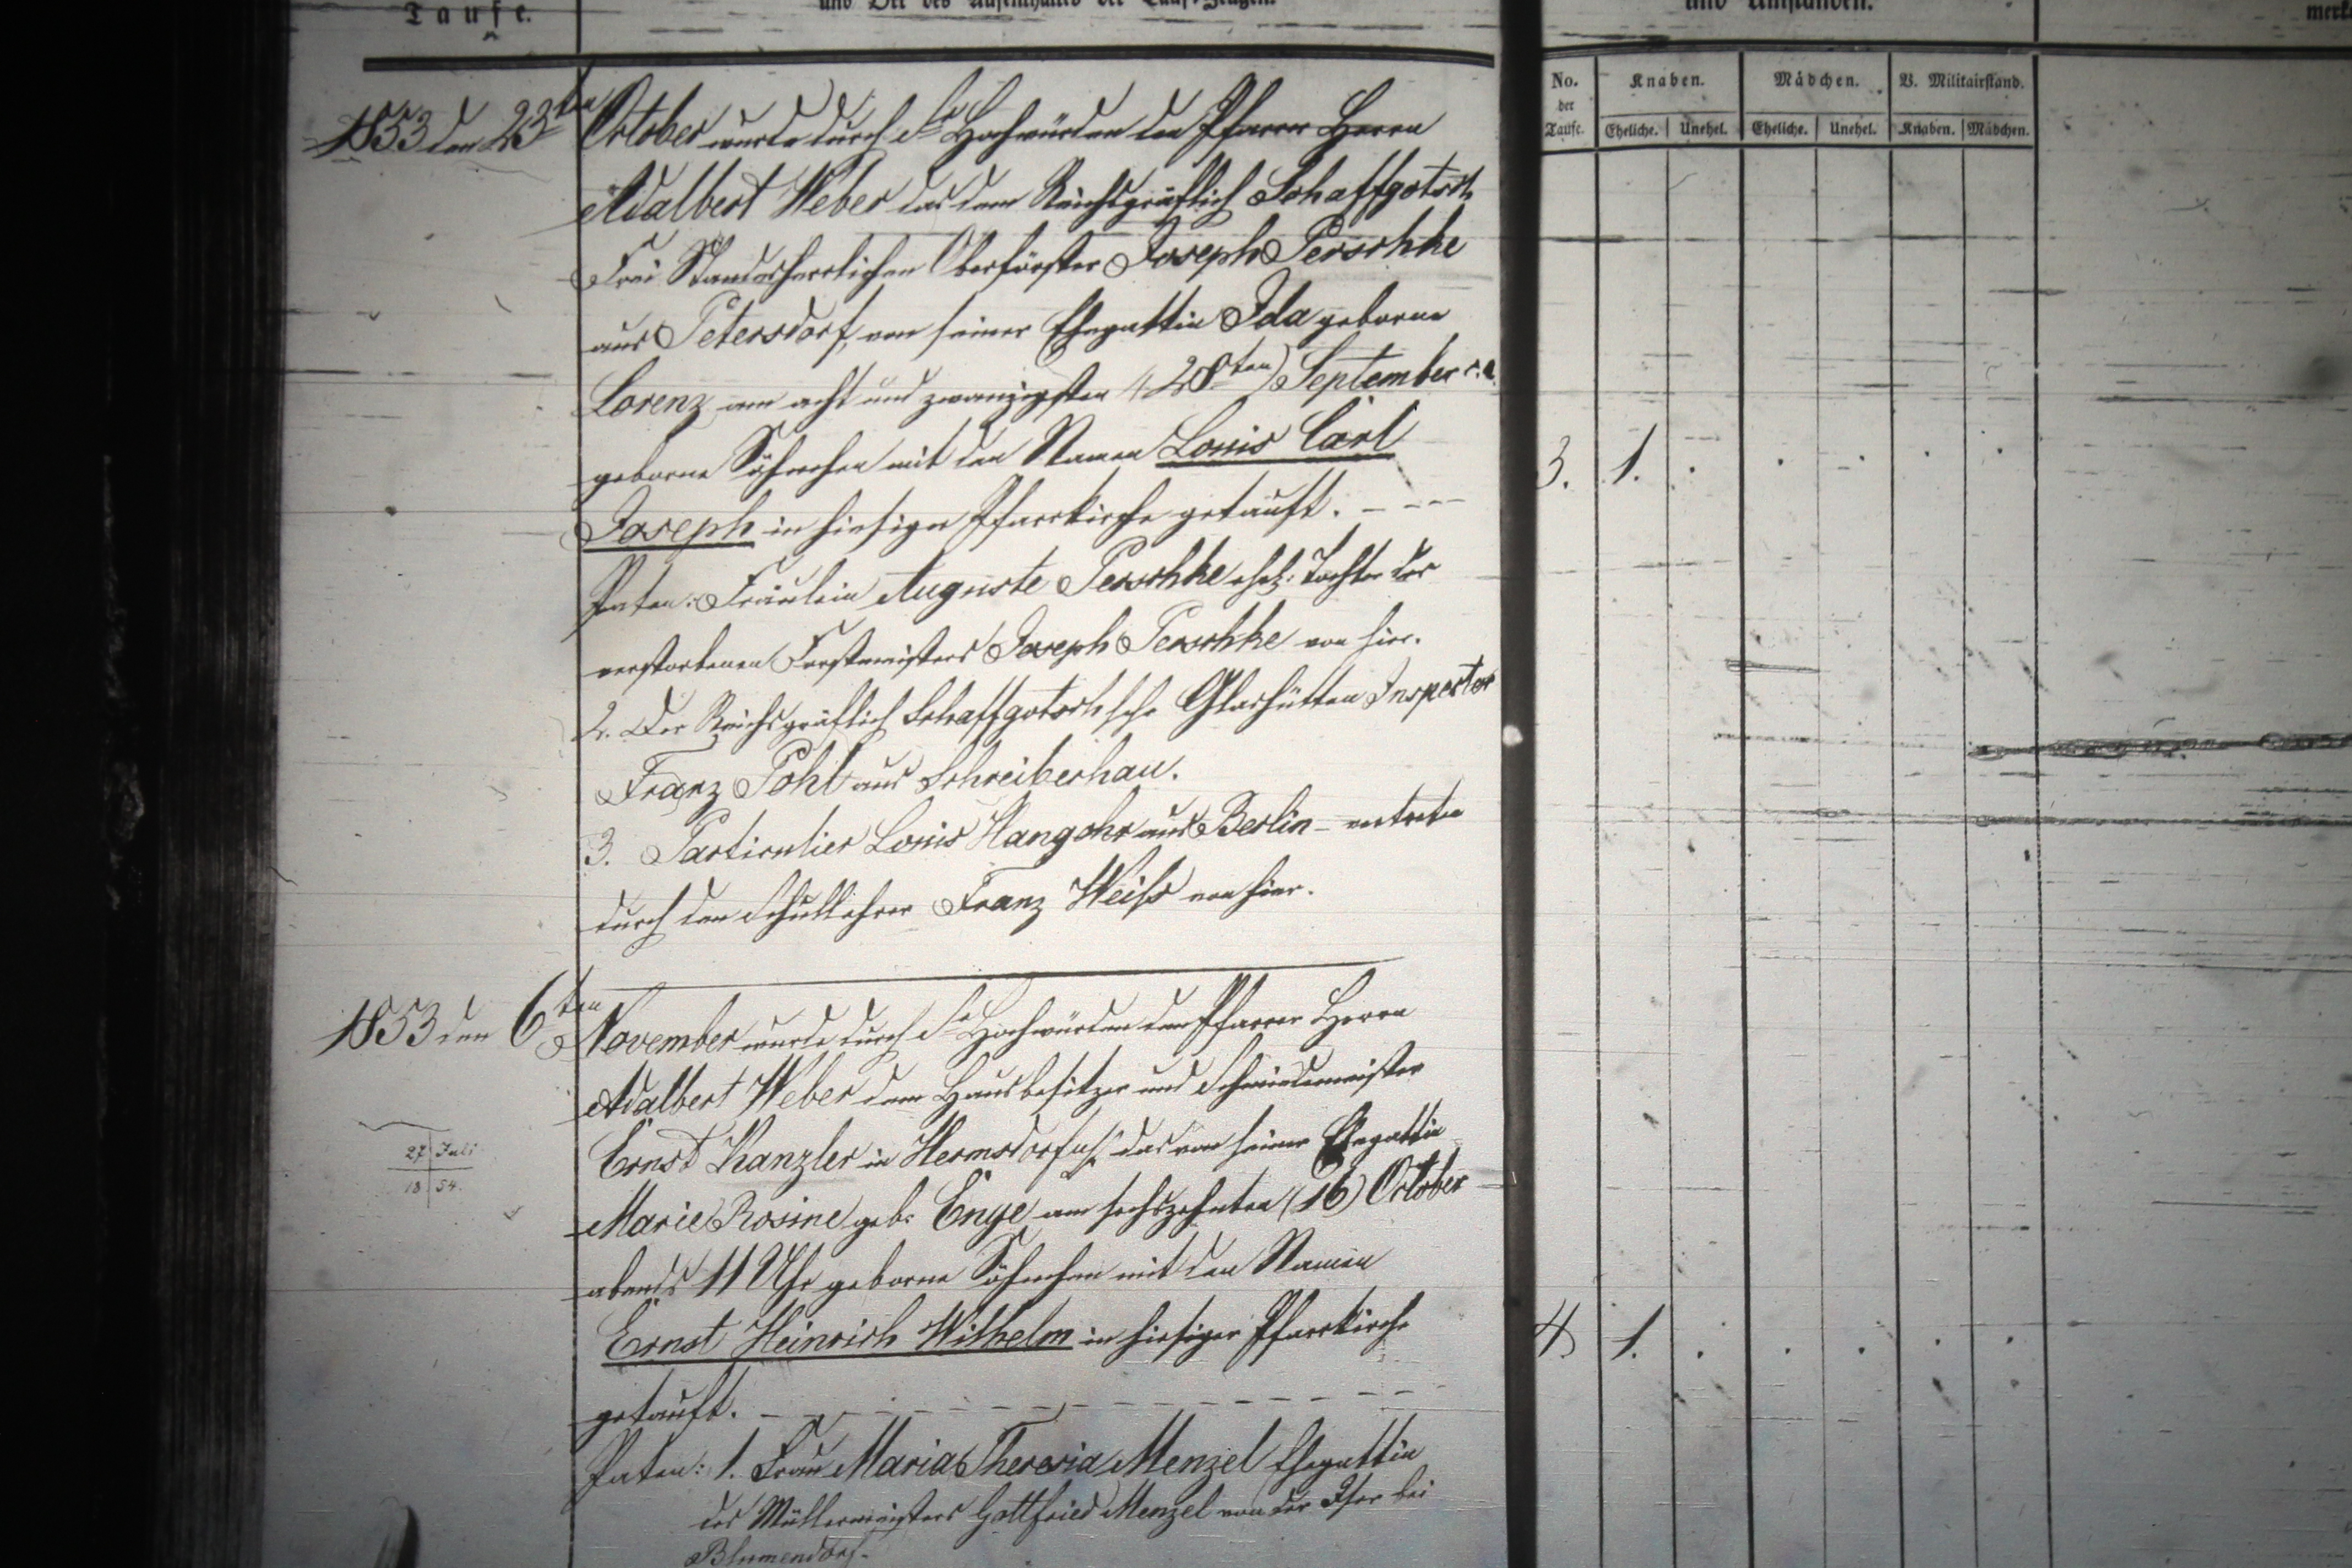 Taufe.
und Ort des Aufenthaltes der Tauf-Zeugen.
und Umständen.
merk
No. der Taufe.
Knaben.
Mädchen.
V. Militairstand.
Eheliche. Unehel. Eheliche. Unehel. Knaben. Mädchen.
1853 den 23ten October wurde durch Se Hochwürden den Pfarrer Herrn
Adalbert Weber das dem Reichsgräflich Schaffgotsch
Frei Standesherrlichen Oberförster Joseph Perschke
aus Petersdorf, von seiner Ehegattin Ida geborne
Lorenz am acht und zwanzigsten (28ten) September c. a.
geborne Söhnchen mit den Namen Louis Carl
3. 1.
Joseph in hiesiger Pfarrkirche getauft.
Paten: Fräulein Auguste Perschke ehel: Tochter des
verstorbenen Forstmeisters Joseph Perschke von hier.
2. Der Reichsgräflich Schaffgotsch'sche Glashütten Inspector
Franz Pohl aus Schreiberhau.
3. Particulier Louis Hangohr aus Berlin - vertreten
durch den Schullehrer Franz Weiß von hier.
1853 den 6ten November wurde durch Se Hochwürden den Pfarrer Herrn
Adalbert Weber dem Hausbesitzer und Schmiedemeister
Ernst Kanzler in Hermsdorf das von seiner Ehegattin
27 Juli
18 54.
Marie Rosine geb: Enge am sechszehnten (16) October
abends 11 Uhr geborne Söhnchen mit den Namen
Ernst Heinrich Wilhelm in hiesiger Pfarrkirche
4. 1.
getauft.
Paten: 1. Frau Maria Theresia Menzel Ehegattin
des Müllermeisters Gottfried Menzel von der Iser bei
Blumendorf.